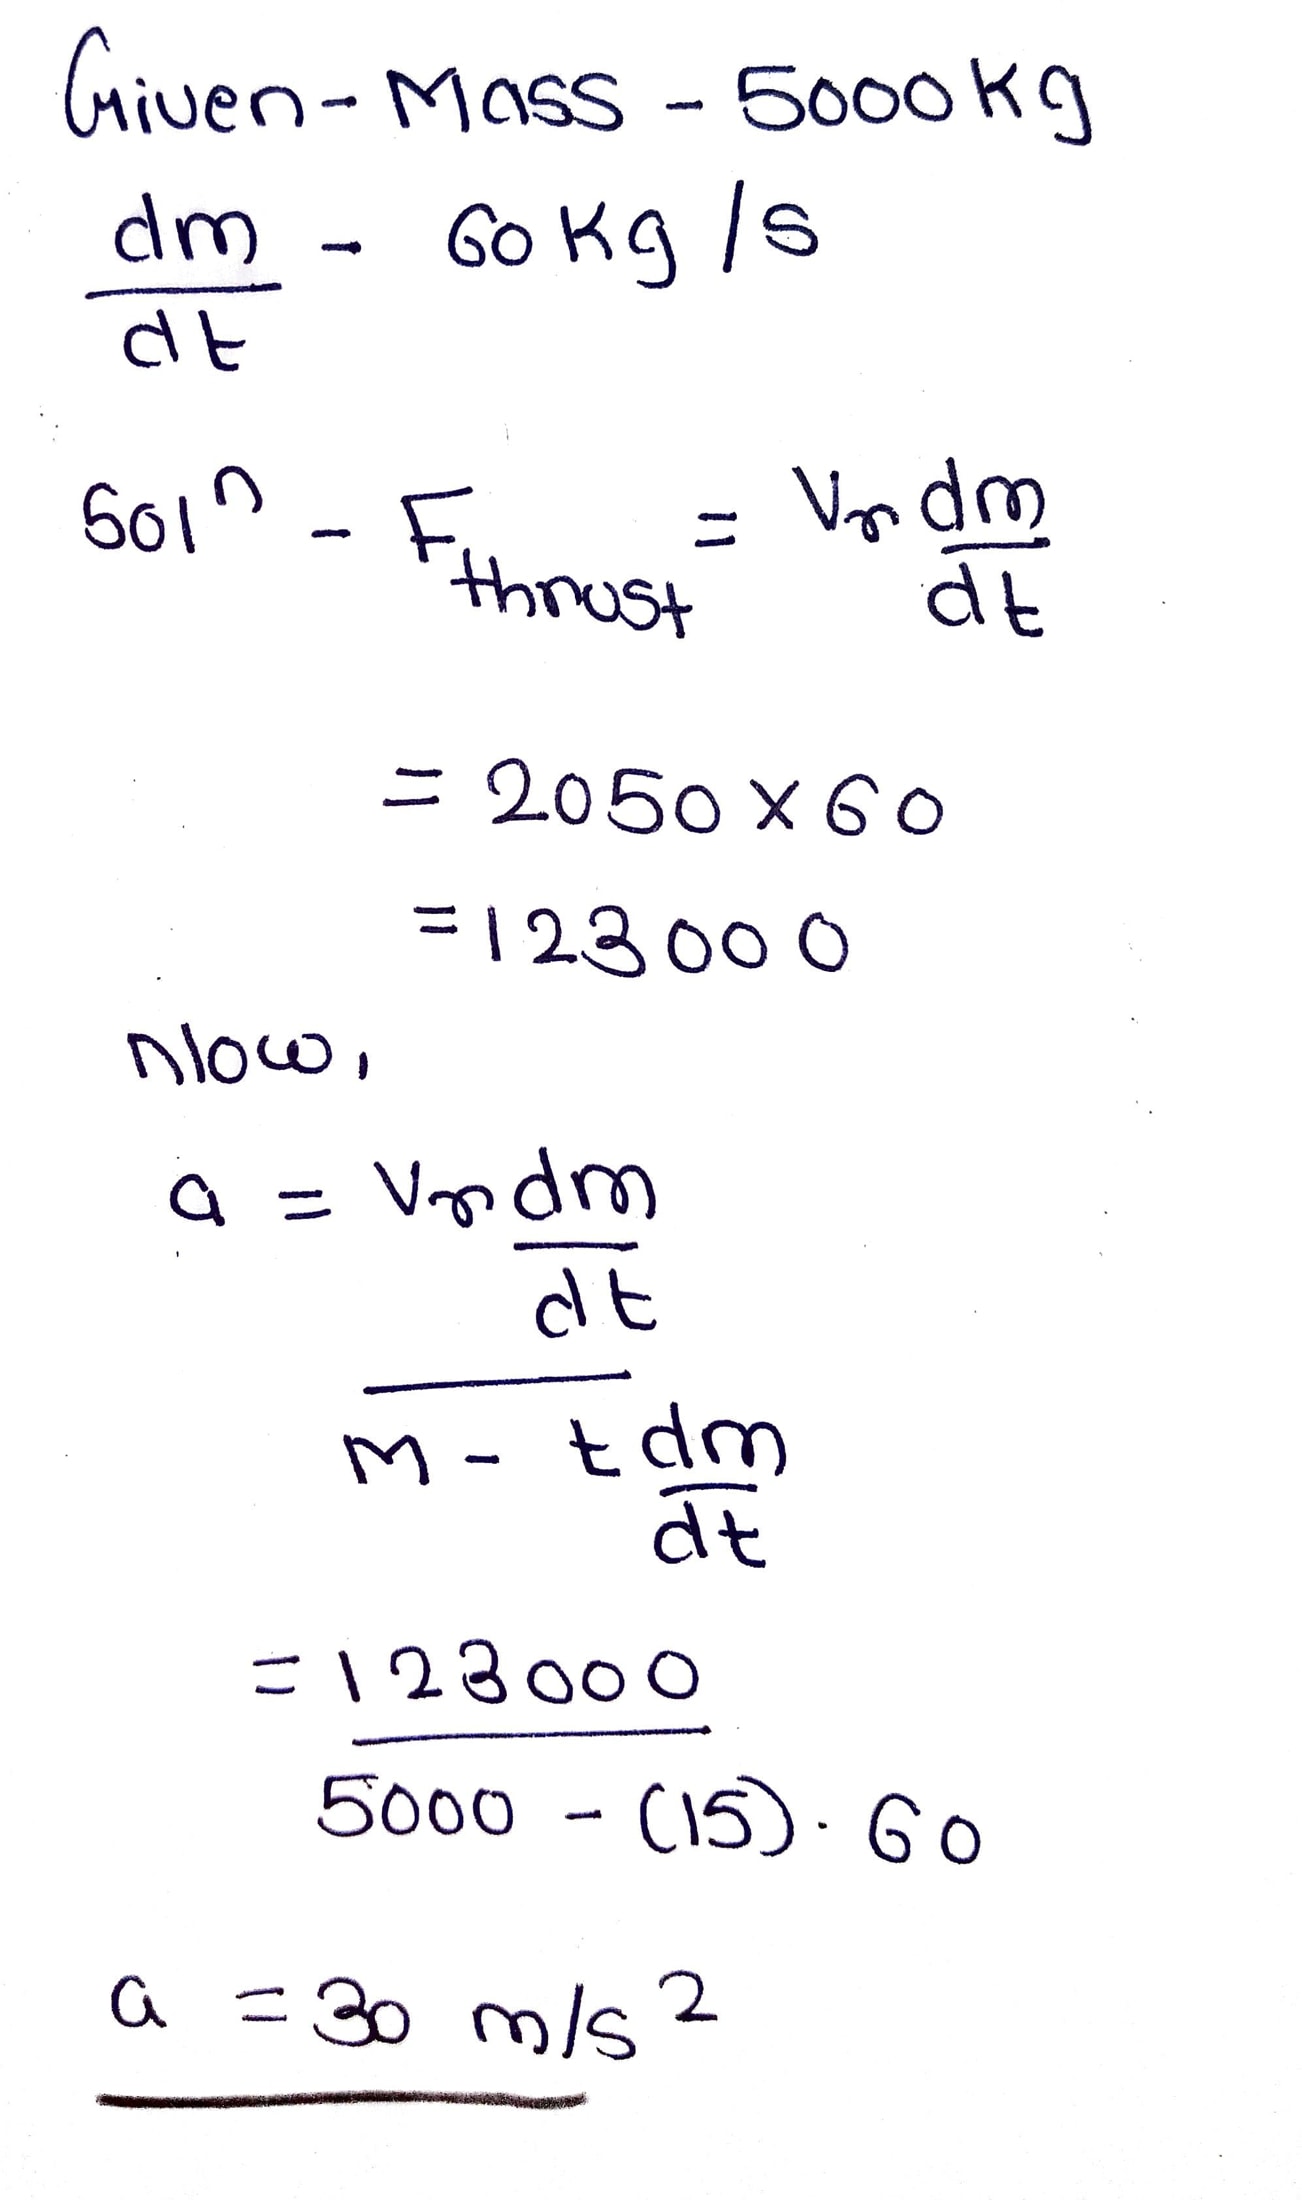 Given - Mass - 5000 Kg
dm - 60 Kg / s
dt
Solⁿ - F thrust = Vr dm
dt
= 2050 x 60
= 123000
Now,
a = Vr dm
dt
M - t dm
dt
= 123000
5000 - (15). 60
a = 30 m/s²